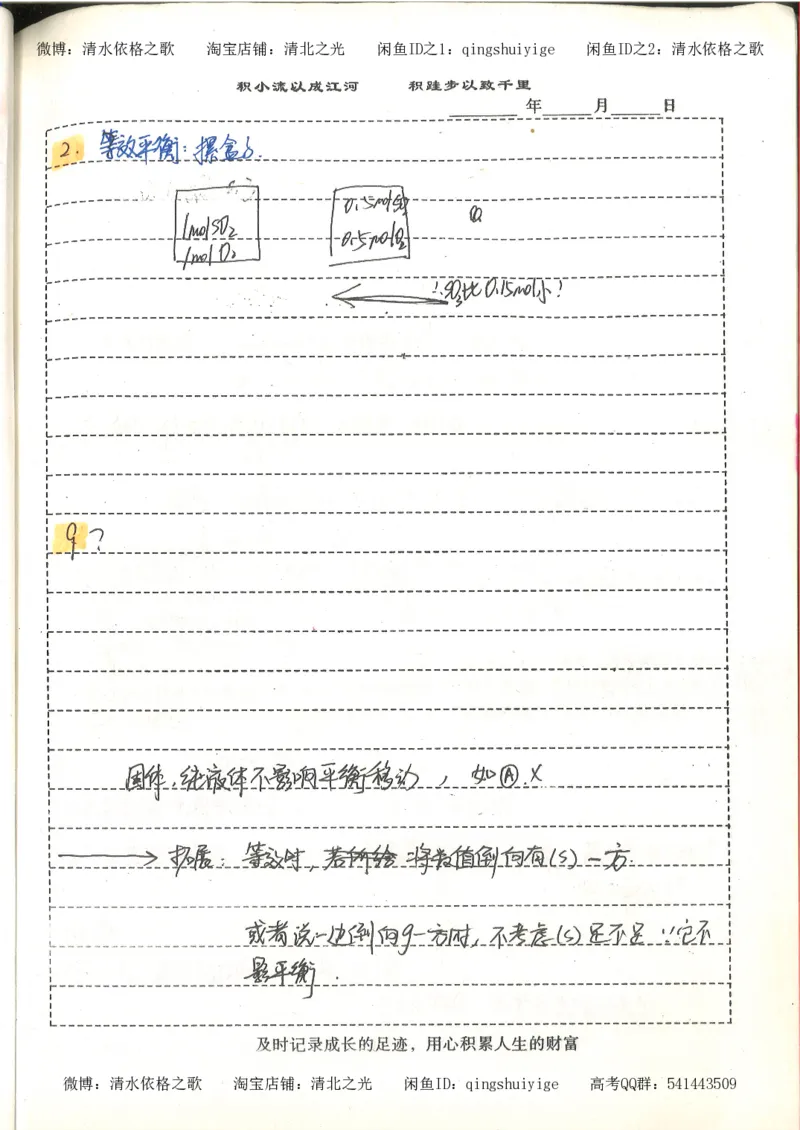 微博：清水依格之歌 淘宝店铺：清北之光 闲鱼ID之1：qingshuiyige 闲鱼ID之2：清水依格之歌
积小流以成江河 积跬步以致千里
年 月 日
2. 等效平衡：摞盒子.
1molSO2 0.5molSO2
1molO2 0.5molO2
∴SO3比0.15mol小！
9？
固体，纯液体不影响平衡移动，如Ⓐ.X
拓展：等效时，若所给 将数值倒向有(s)一方.
或者说一边倒向g一方时，不考虑(s)足不足∵它不
影平衡.
及时记录成长的足迹，用心积累人生的财富
微博：清水依格之歌 淘宝店铺：清北之光 闲鱼ID：qingshuiyige 高考QQ群：541443509